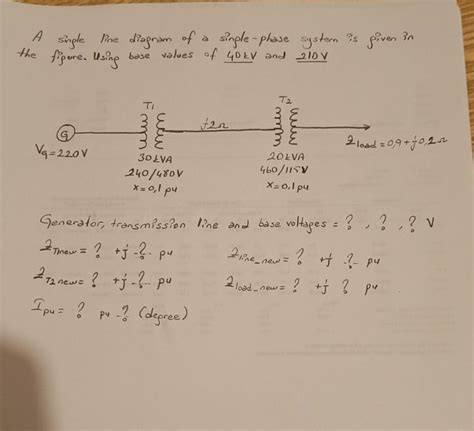 A single line diagram of a single-phase system is given in
the figure. Using base values of 40kV and 210V
T1
T2
G
j2Ω
Zload = 0,9 + j0,2Ω
VG = 220V
30kVA
240/480V
x = 0,1 pu
20kVA
460/115V
x = 0,1 pu
Generator, transmission line and base voltages = ? , ? , ? V
ZT1new = ? + j - ? - pu
Zline_new = ? + j ? - pu
ZT2 new = ? + j - ? - pu
Zload_new = ? + j ? pu
Ipu = ? pu - ? (degree)